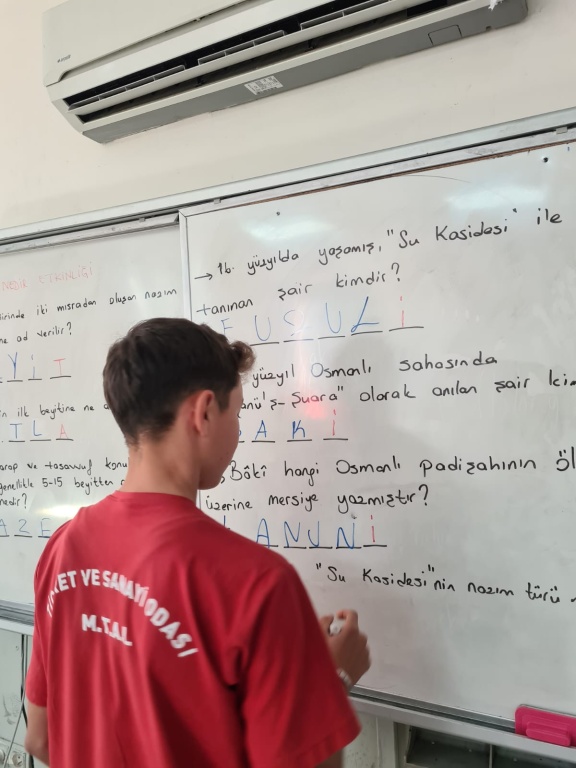 ETKİNLİĞİ
iki mısradan oluşan nazım
ne ad verilir?
Y İ T
ilk beyitine ne
T L A
ve tasavvuf
genellikle 5-15 beyitten
nedir?
A Z E
→ 16. yüzyılda yaşamış, "Su Kasidesi" ile
tanınan şair kimdir?
F U Z U L İ
yüzyıl Osmanlı sahasında
Şuara" olarak anılan şair
A K İ
Bâkî hangi Osmanlı padişahının
üzerine mersiye yazmıştır?
A N U N İ
"Su Kasidesi"nin nazım türü
VE SANAYİ ODASI
M.T.A.L